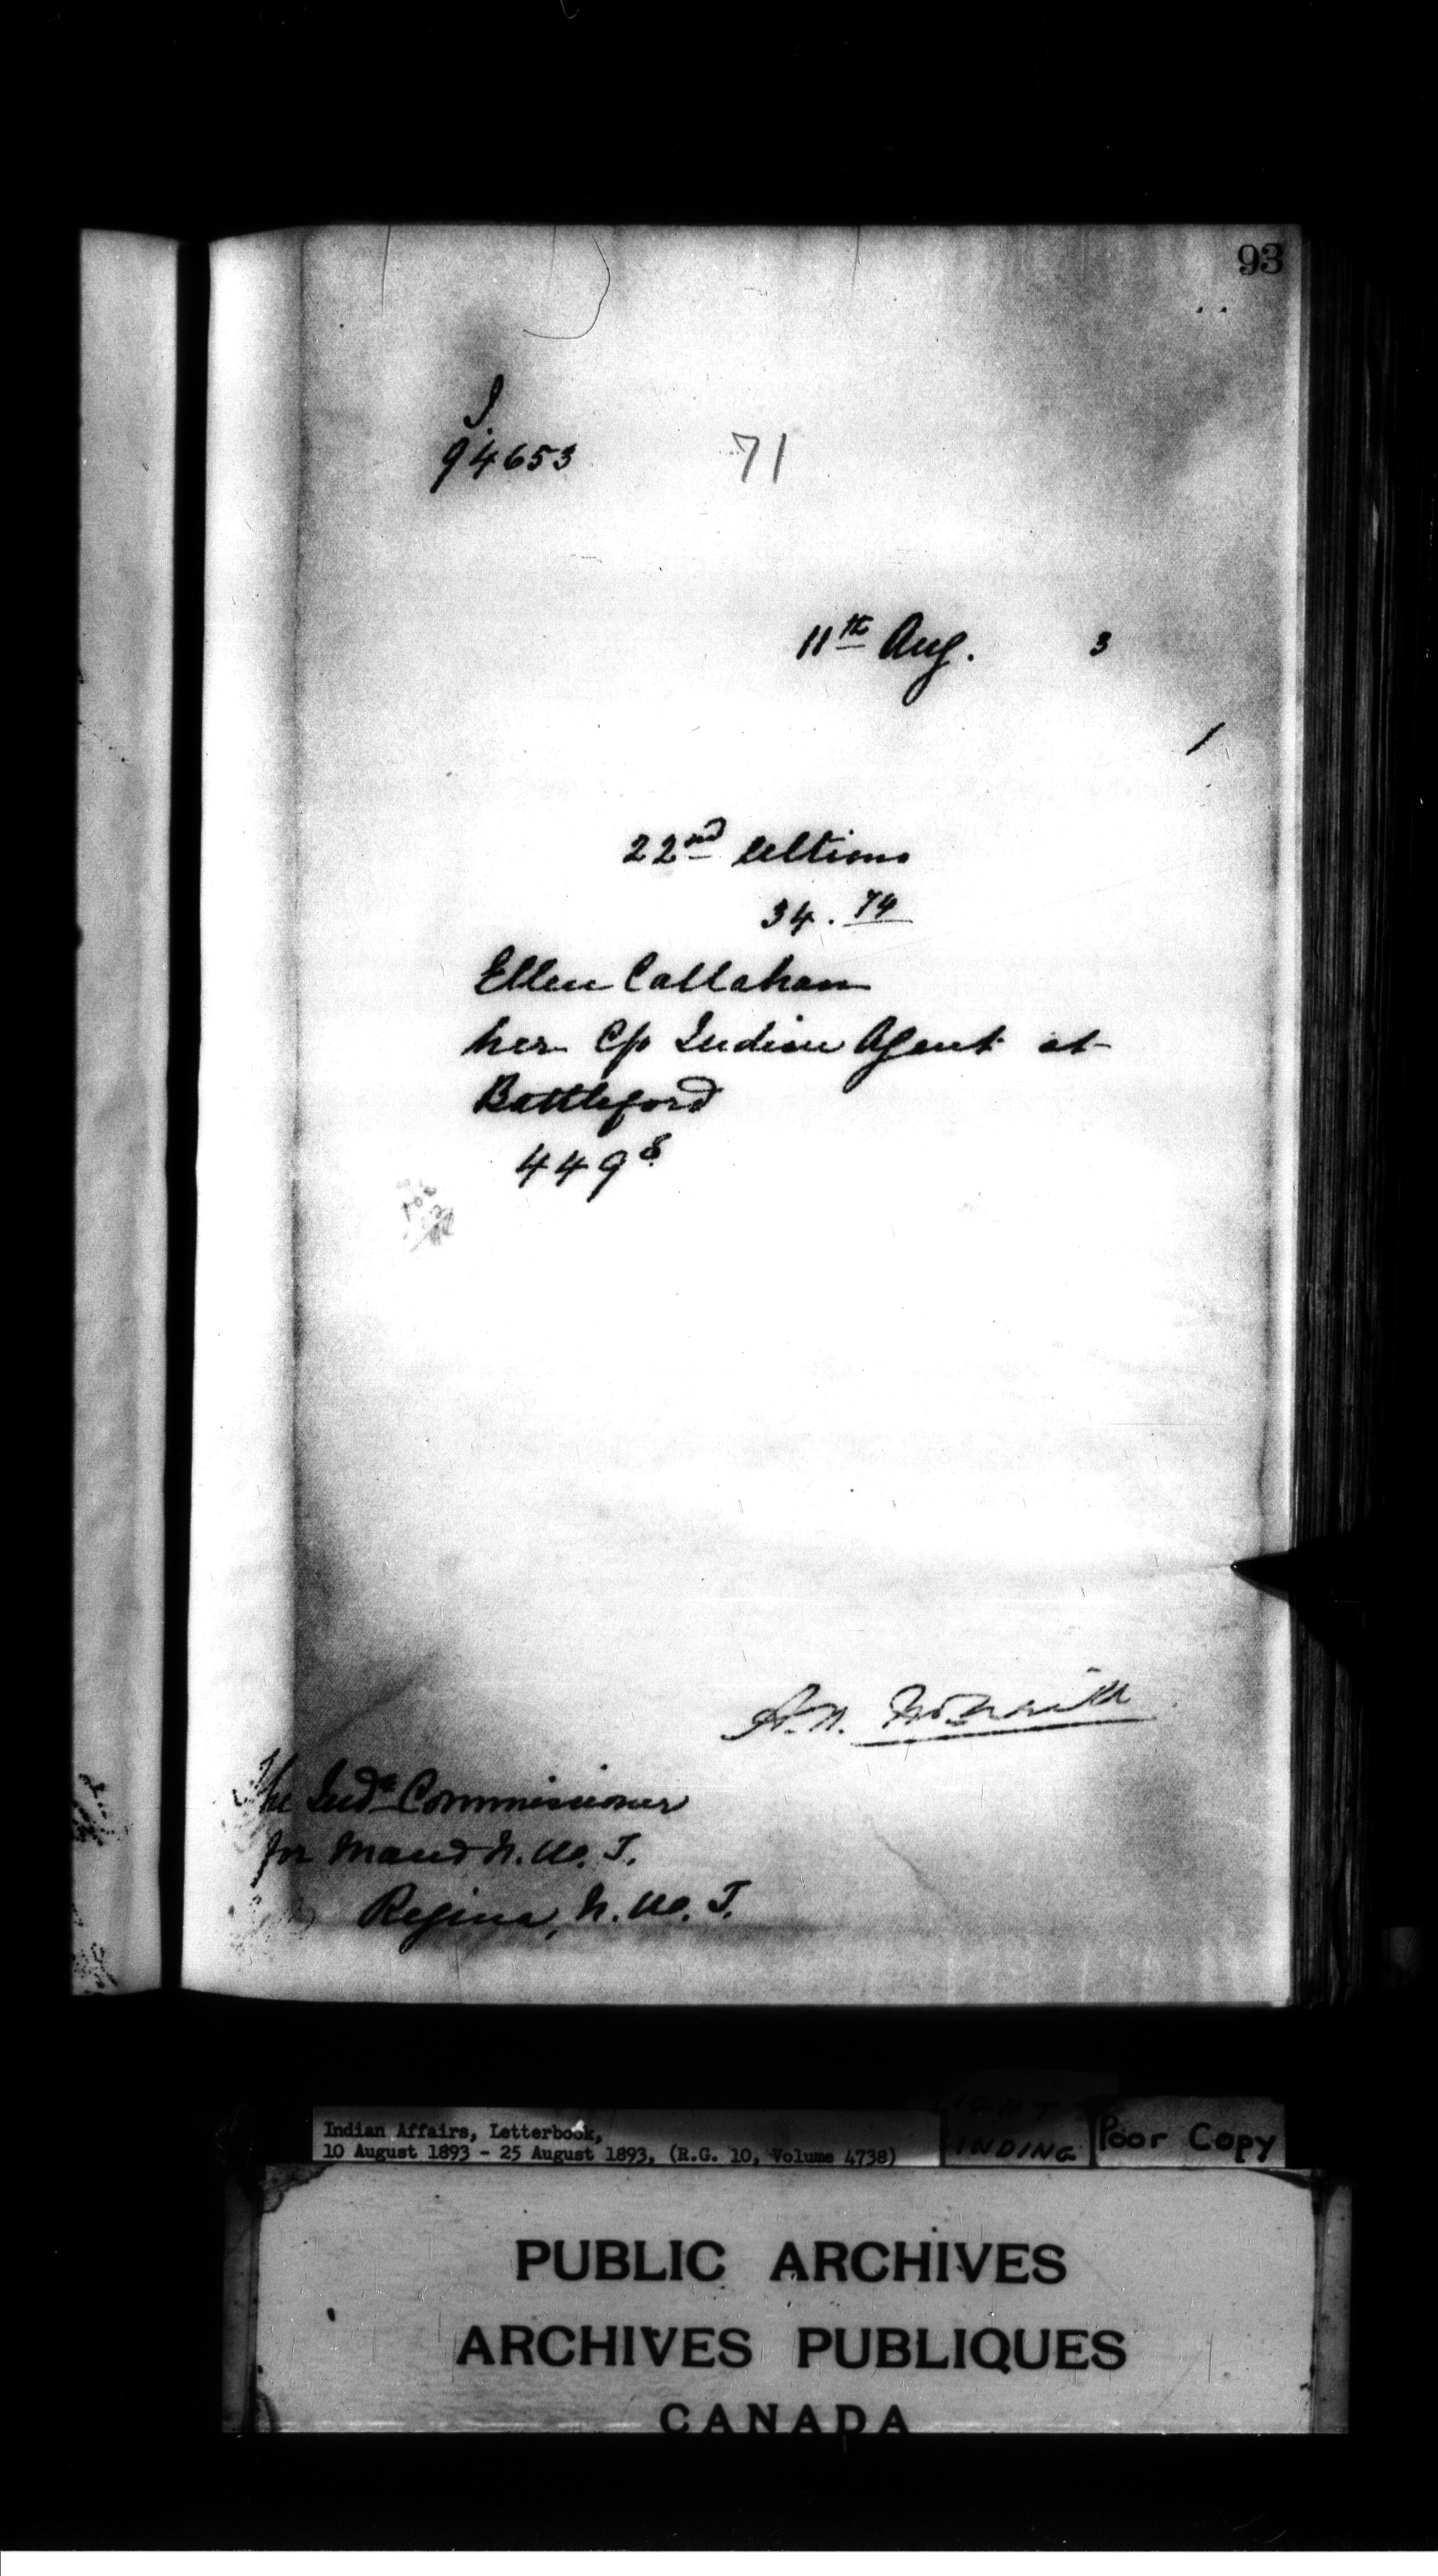 93
I.
94653
71
11th Aug. 3
22nd ultimo
34.74
Ellen Callahan
her c/o Indian Agent at
Battleford
4498
The Indn Commissioner
for Man & N.W.T.
Regina, N.W.T.
Indian Affairs, Letterbook,
10 August 1893 - 25 August 1893, (R.G. 10, Volume 4738)
BINDING
Poor Copy
PUBLIC ARCHIVES
ARCHIVES PUBLIQUES
CANADA